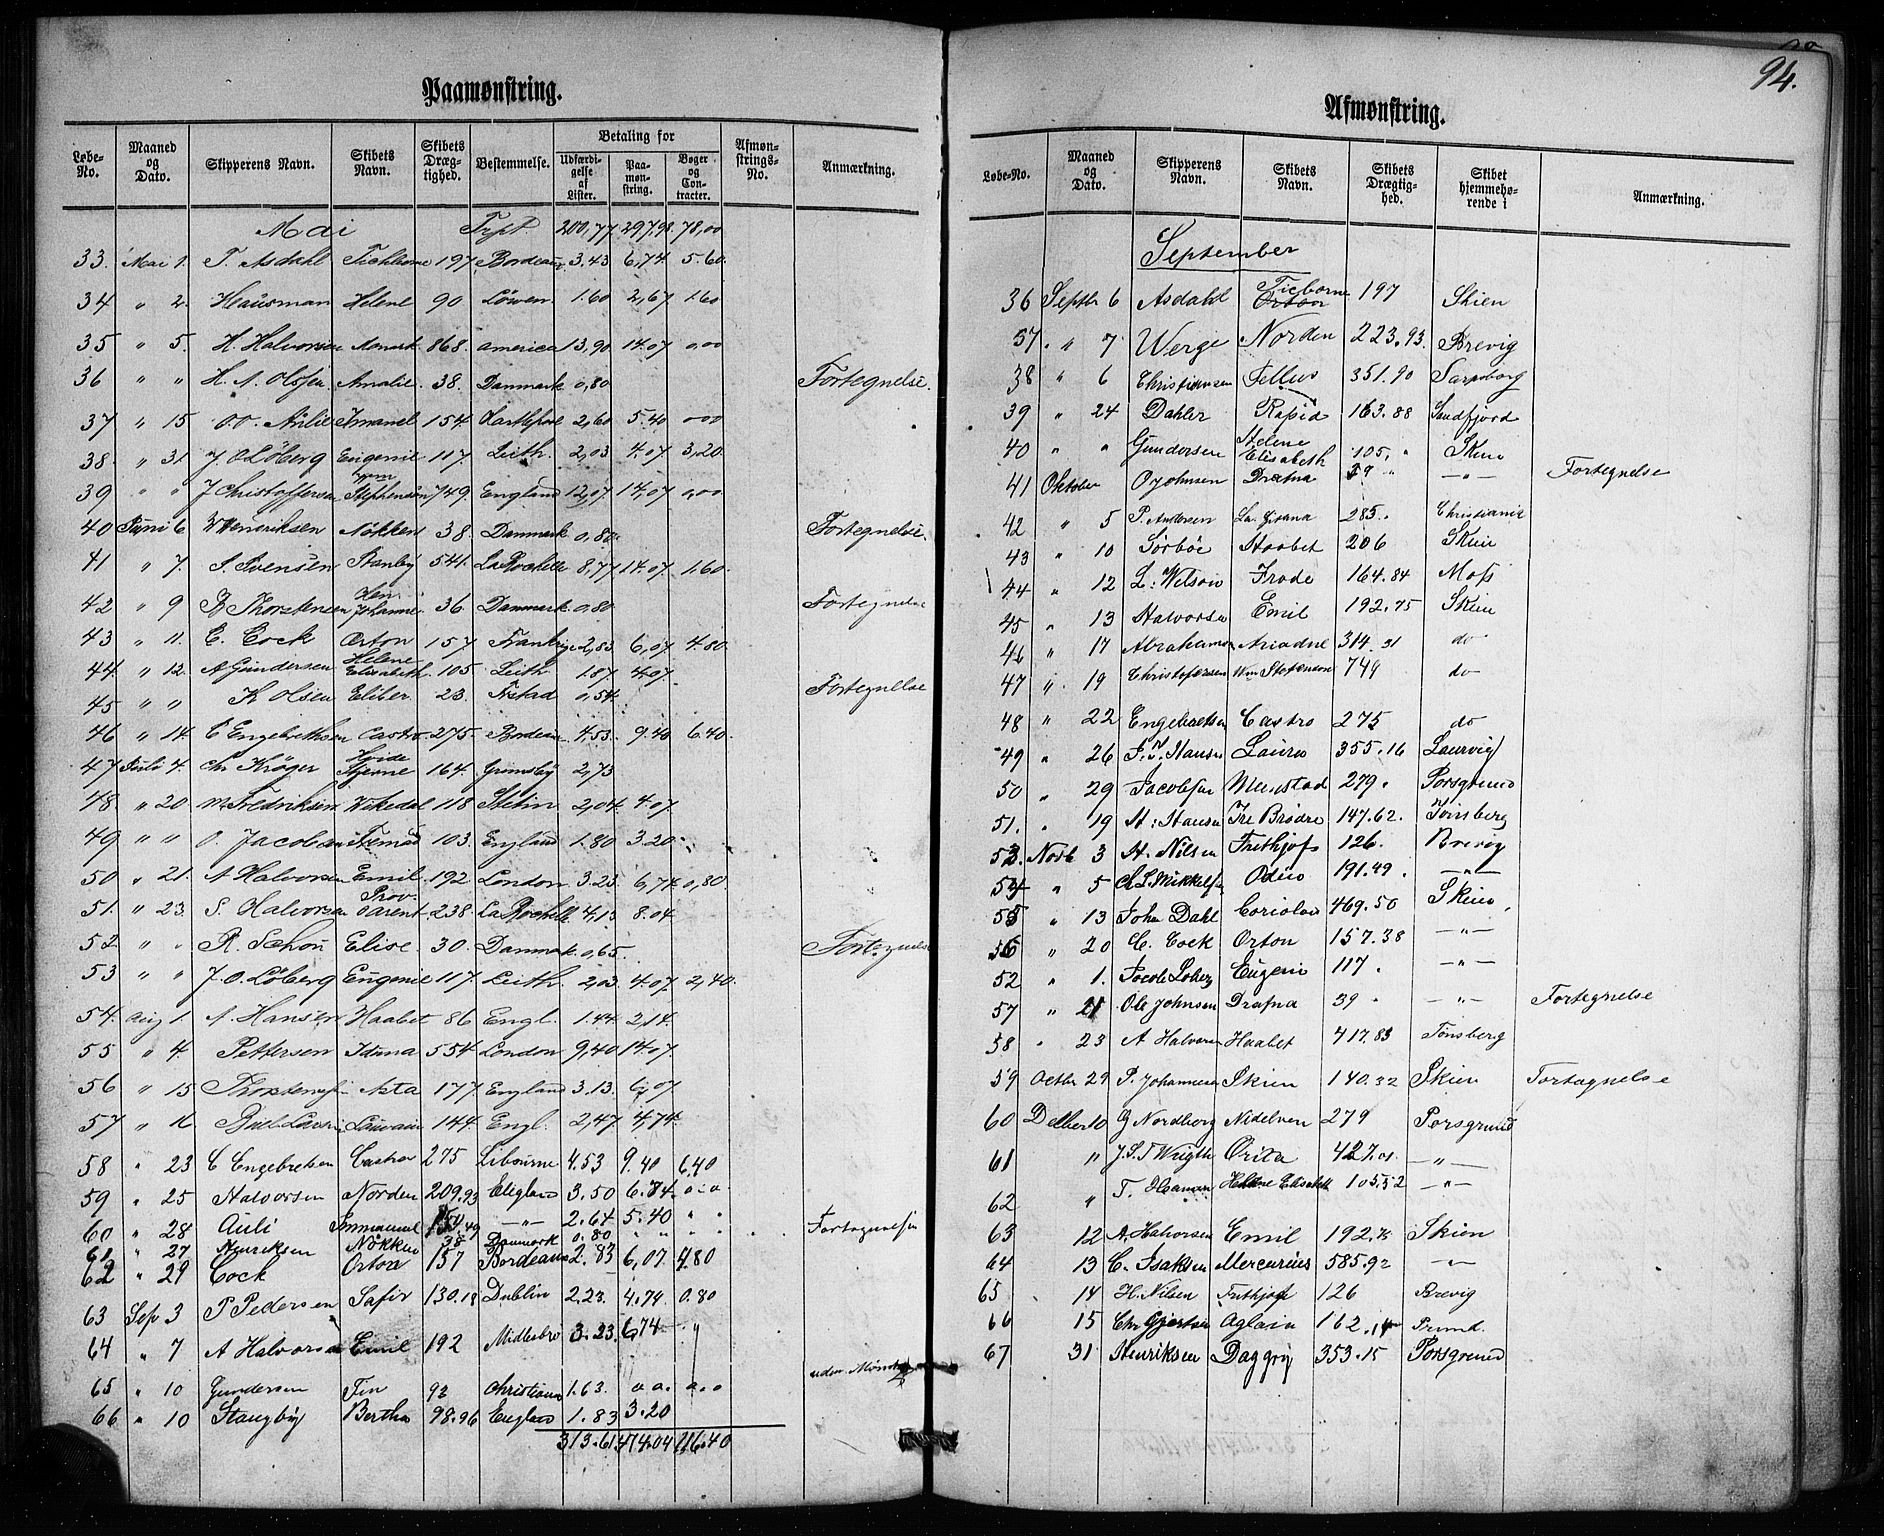 94.
Paamønstring.
Løbe-No. Maaned og Dato. Skipperens Navn. Skibets Navn. Skibets Dræg-tighed. Bestemmelse. Betaling for Udfærdi-gelse af Lister. Paa-møn-string. Bøger og Con-tracter. Afmøn-strings-No. Anmærkning.
Mai Trpt 200,77 297,98 78,00
33. Mai 1. T. Asdahl 197 Bordeaux 3.43 6,74 5.60
34 " 2. Hausman Helene 90 Löwen 1.60 2,67 1.60
35 " 5. H. Halvorsen 868. america 13,90 14.07 0,00
36 " " H. A. Olsen Amalie. 38. Danmark 0,80 Fortegnelse.
37 " 15 Imanuel 154. 2,60 5.40 000
38. " 31. J. O Löberg Eugenie 117. Leith. 2,03 4.07 3,20
39 " " J Christoffersen Wm Stephenson 749. England 12,07 14,07 0,00
40 Juni 6 W Henriksen Nökken 38. Danmark 0,80 Fortegnelse.
41 " 7. S. Svensen Stanby 541. La Rochelle 8,77 14.07 1.60
42 " 9 B. Thorstensen Johanne 36 Danmark 0,80 Fortegnelse
43 " 11. C. Cock Orton 157 Frankrige 2,83 6,07 4.80
44. " 12. A Gundersen Helene Elisabeth 105 Leith 1.87 4.07
45 " " K Olsen Eliber 23 0,54. Fortegnelse
46 " 14. C Engebrethsen Castro 275. Bordeau 4,53 9.40 6.40
47 Juli 4. Chr Kröger Hjerne 164. Grimsby 2,73
48. " 20 M Fredriksen Vikedal 118 Stetin 2,04 4.07
49 " " O. Jacobsen 103. England 1.80 3.20
50 " 21. A Halvorsen Emil 192 London 3.23 6,74 0,80
51. " 23. S. Halvorsen Prov- 238. La Rochelle 4,13 8.04
52 " " R. Schon Elise 30 Danmark 0,65. Fortegnelse
53 " " J. O. Löberg Eugenie 117. Leith. 2,03 4.07 2,40
54. Aug 1. A. Hansen Haabet 86 Engl. 1.44 2,14.
55 " 4. Pettersen Iduna 554 London 9,40 14.07
56 " 15 Asta 177 England 3.13 6,07
57 " 16 144 Engl. 2,47 4,74
58 " 23 C Engebretsen Castro 275 Libourne 4.53 9.40 6.40
59 " 25 Halvorsen Norden 209.93 England 3.50 6.74
60 " 28 Auli Immanuel 154.49 —"— 2.64 5.40 " "
61 " 27 Henriksen Nökken 38 Danmark 0.80 " " Fortegnelse
62 " 29 Cock Orton 157 Bordeaux 2.83 6,07 4.80
63 Sep 3 P Pedersen Safir 130.18 Dublin 2.23. 4.74 0.80
64 " 7 A Halvorsen Emil 192 Midlesbro 3.23 6,74 "
65 " 10 Gundersen Fin 92 Christiania 1.63. uden Mønstr
66 " 10 Stangby Bertha 98.96 England 1.83 3.20
313.61 474.04 116.40
Afmønstring.
Løbe-No. Maaned og Dato. Skipperens Navn. Skibets Navn. Skibets Drægtig-hed. Skibet hjemmehø-rende i Anmærkning.
September
36 Septbr 6 Asdahl Ticborne Orton 197 Skien
57 " 7 Werge Norden 223.93. Brevig
38 " 6 Christiansen Tellus 351.90 Sarpsborg
39 " 24 Dahler Rapid 163.88 Sandfjord
40 " " Gundersen Helene Elisabeth 105, " Skien
41 Oktober O Johnsen Drafna 39 " —"— Fortegnelse
42 " 5 P. Andersen 285. Christiania
43 " 10 Sørböe Haabet 206 Skien
44 " 12 L. Wilson Frode 164.84 Moss
45 " 13 Halvorsen Emil 192.75 Skien
46 " 17 Abrahamsen Ariadne 314.31 do
47 " 19 Christofersen Wm Stefenson 749 do
48 " 22 Engebretsen Castro 275 do
49 " 26 Hansen Laura 355.16 Laurvig
50 " 29 Jacobsen Munstad 279. Porsgrund
51. " 19 H. Hansen Tre Brødre 147.62. Tønsberg
53. Novb 3 H. Nilsen Frithjof 126. Brevig
54 " 5 Mikkelsen Odin 191.49. —"—
55 " 13 Johan Dahl Coriolan 469.50 Skien
56 " 20 C. Cock Orton 157.38 —"—
52 " 1. Jacob Loberg Eugeni 117. —"—
57 " 21 Ole Johnsen Drafna 39 " —"— Fortegnelse
58 " 23 A Halvorsen Haabet 417.83 Tønsberg
59 Octbr 29 P. Johannesen Skien 140.32 Skien Fortegnelse
60 Decbber 10 G Nordborg Nidelven 279 Porsgrund
61 " J. S. T Wrigth Orita 427.01 —"—
62 " T. Hauman Helene Elisabeth 105.52 —"—
63 12 A. Halvorsen Emil 192.75 Skien
64 13 C. Isaksen Mercurius 585.92 —"—
65 14 H. Nilsen Frithjof 126 Brevig
66 15 Chr Gjertsen Aglaia 162.14
67 31 Henriksen Daggry 353.15 Porsgrund